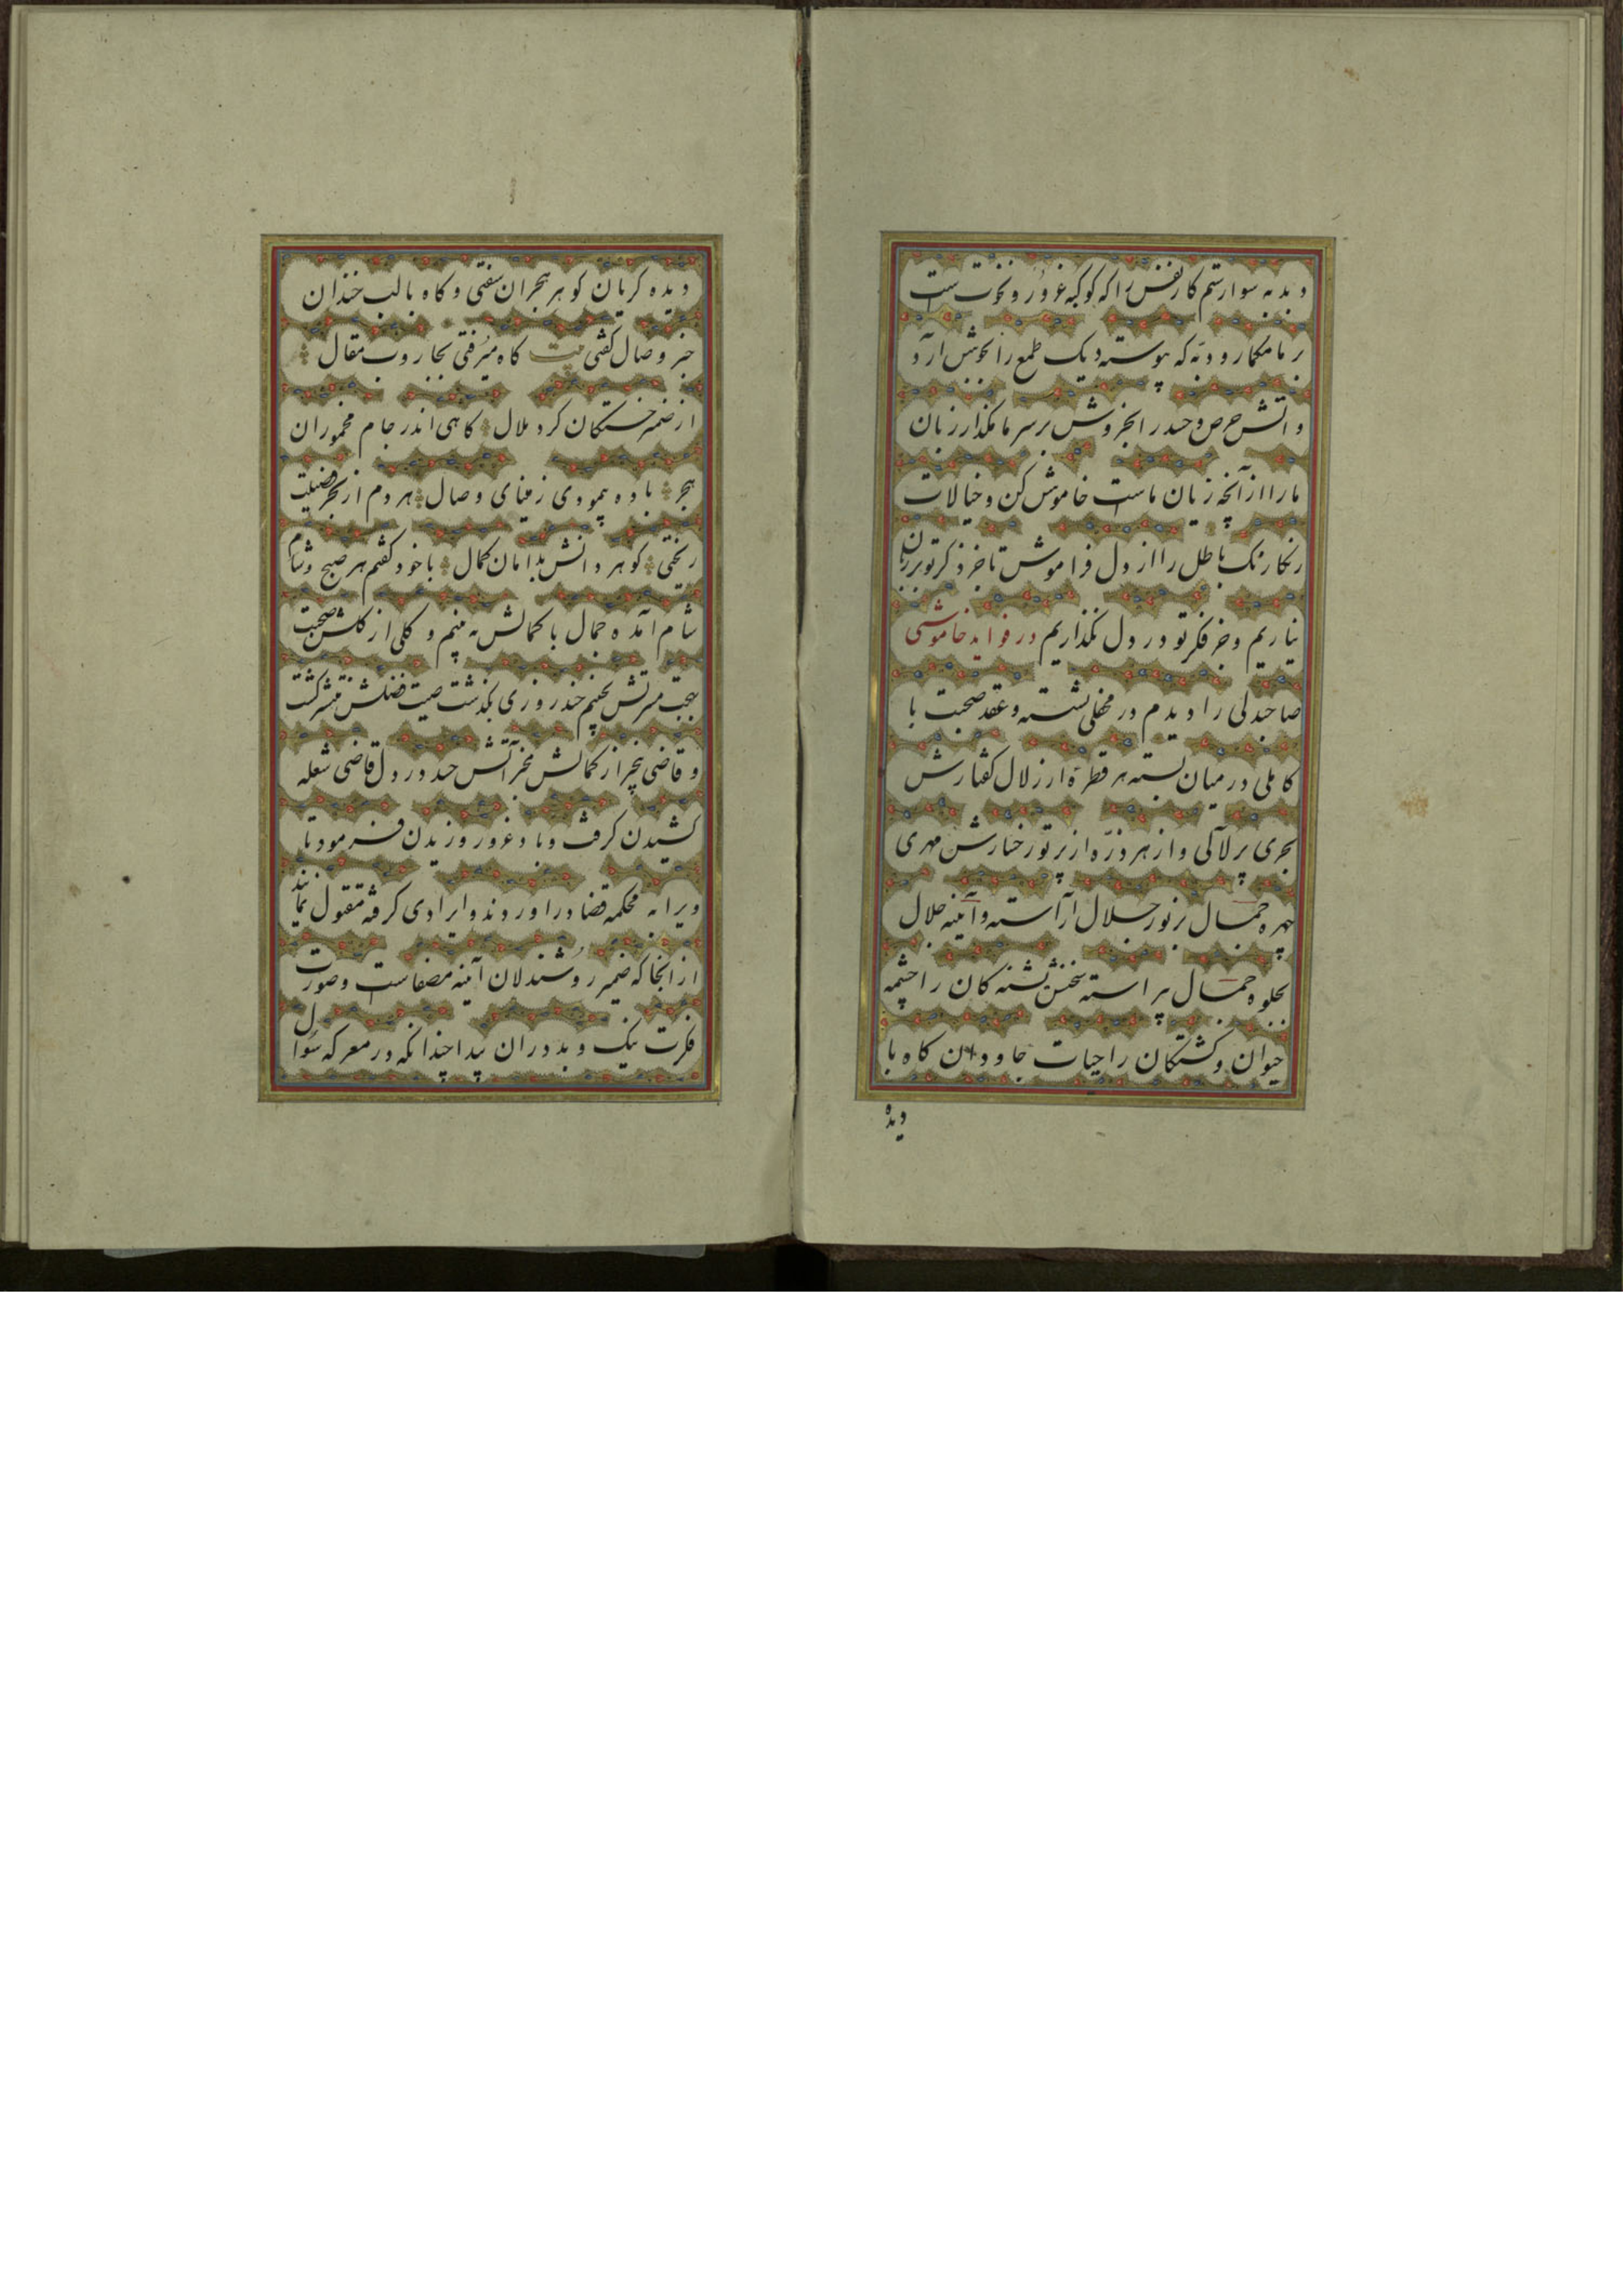 دبدبه سوار ستم کار نفس را که کوکبه غرور و نخوت است
بر ما مکمار و دبه که پیوسته دیک طمع را بجوش آرد
و اتش حرص و حسد را بخروش بر سر ما مکذار زبان
ما را از آنچه زیان ماست خاموش کن و خیالات
رنکارنک باطل را از دل فراموش تا جز ذکر تو بر زبان
نیاریم و جز فکر تو در دل نکذاریم در فواید خاموشی
صاحبدلی را دیدم در محفلی نشسته و عقد صحبت با
کاملی در میان بسته هر قطرۀ از زلال کفتارش
بحری پر لآلی و از هر ذرّه از پرتو رخسارش مهری
چهره جمال بنور جلال آراسته و آئینه جلال
بجلوه جمال پیراسته سخنش تشنه کان را چشمه
حیوان و کشتکان را حیات جاودان کاه با
دیده
دیده کریان کوهر هجران سفتی و کاه با لب خندان
خبر وصال کفتی بیت کاه میرفتی بجاروب مقال
از ضمیر خستکان کرد ملال کاهی اندر جام مخموران
هجر باده پیمودی ز مینای وصال هر دم از بحر فضیلت
ریختی کوهر دانش بدامان کمال با خود کفتم هر صبح و شام
شام آمده جمال با کمالش به بینم و کلی از کلشن صحبت
بهجت مسرتش بچینم چند روزی بکذشت صیت فضلش منتشر کشت
و قاضی بخبر از کمالش مخبر آتش حسد در دل قاضی شعله
کشیدن کرفت و باد غرور وزیدن فرمود تا
ویرا به محکمه قضا در اوردند و ایرادی کرفته مقتول نمایند
از انجا که ضمیر روشندلان آینه مصفاست و صورت
فکرت نیک و بد در ان پیدا چندانکه در معرکه سؤال